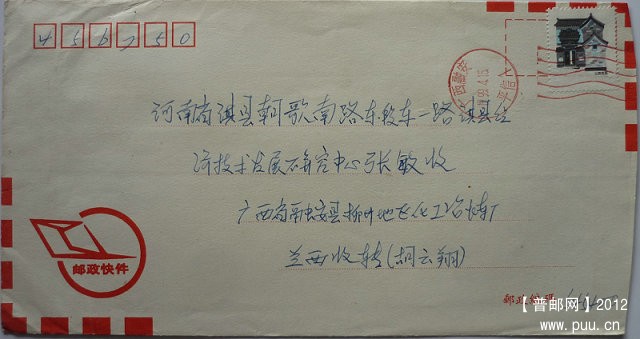 456750
河南省淇县朝歌南路东段车一路淇县经
济技术发展研究中心张敏收
广西省融安县柳州地区化工冶炼厂
兰西收转(胡云翔)
邮政快件
邮政编码
【普邮网】2012
www.puu.cn